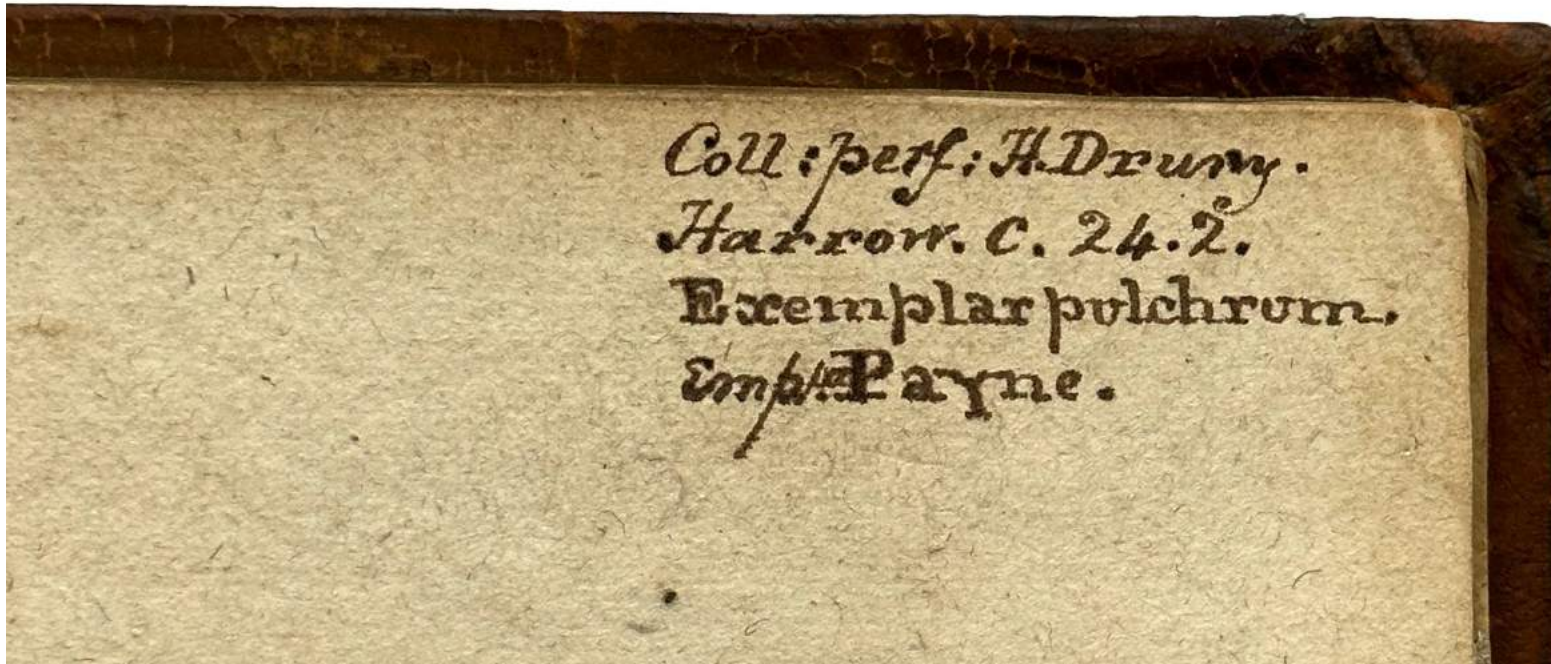 Coll: perf: H. Drury.
Harrow. C. 24. 2.
Exemplar pulchrum.
Payne.